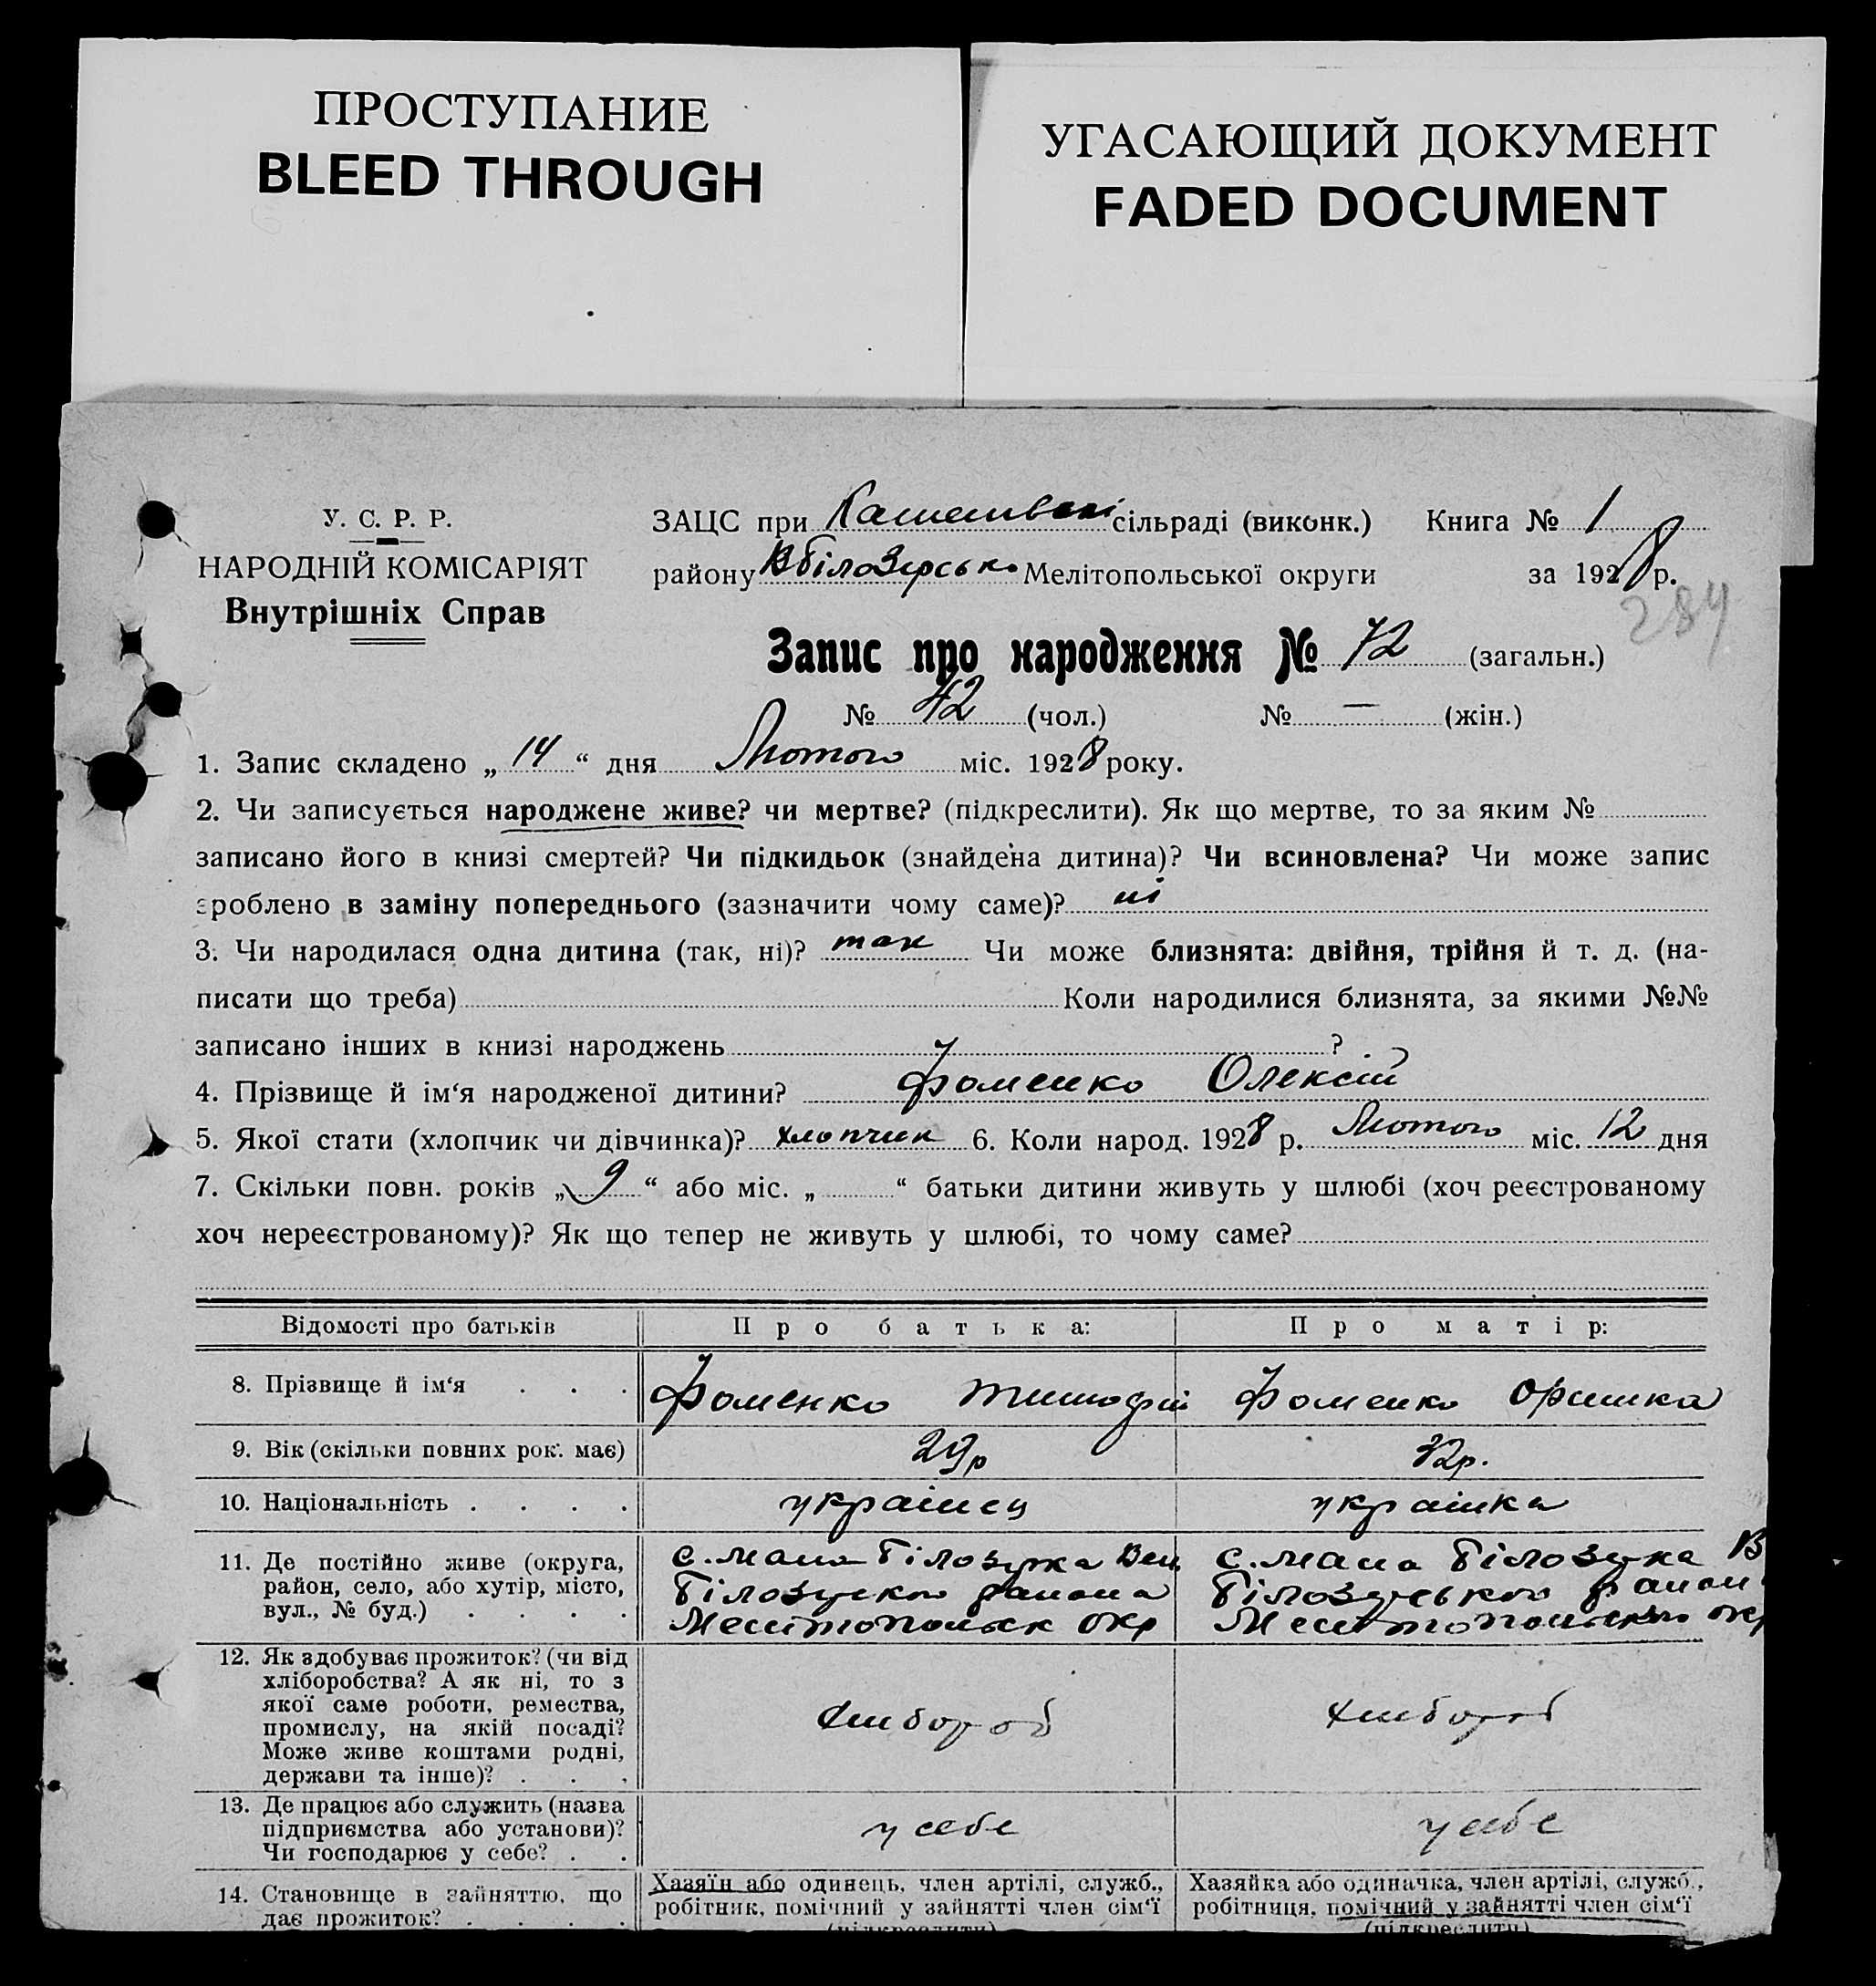 ПРОСТУПАНИЕ
BLEED THROUGH
УГАСАЮЩИЙ ДОКУМЕНТ
FADED DOCUMENT
У. С. Р. Р.
НАРОДНІЙ КОМІСАРІЯТ
Внутрішніх Справ
ЗАЦС при сільраді (виконк.) Книга № 1
району ВБілозерсько Мелітопольської округи за 1928 р.
284
Запис про народження № 72 (загальн.)
№ 42 (чол.) № — (жін.)
1. Запис складено „ 14 “ дня Лютого міс. 1928 року.
2. Чи записується народжене живе? чи мертве? (підкреслити). Як що мертве, то за яким №
записано його в книзі смертей? Чи підкидьок (знайдена дитина)? Чи всиновлена? Чи може запис
зроблено в заміну попереднього (зазначити чому саме)? ні
3. Чи народилася одна дитина (так, ні)? так Чи може близнята: двійня, трійня й т. д. (на-
писати що треба) Коли народилися близнята, за якими №№
записано інших в книзі народжень ?
4. Прізвище й ім‘я народженої дитини? Фоменко Олексій
5. Якої стати (хлопчик чи дівчинка)? хлопчик 6. Коли народ. 1928 р. Лютого міс. 12 дня
7. Скільки повн. років „ 9 “ або міс. „ “ батьки дитини живуть у шлюбі (хоч реєстрованому
хоч нереєстрованому)? Як що тепер не живуть у шлюбі, то чому саме?
Відомості про батьків Про батька: Про матір:
8. Прізвище й ім‘я . . . Фоменко Тимофій Фоменко Оришка
9. Вік (скільки повних рок. має) 29р 32р.
10. Національність . . . . українец українка
11. Де постійно живе (округа,
район, село, або хутір, місто,
вул., № буд.) . . . .
с. Мала Білозерка Вел
Білозерско района
Мелитопольск окр
с. Мала Білозерка В
Білозерсько район
Мелитопольсько окр
12. Як здобуває прожиток? (чи від
хліборобства? А як ні, то з
якої саме роботи, ремества,
промислу, на якій посаді?
Може живе коштами родні,
держави та інше)? . . .
хлібороб
хлібороб
13. Де працює або служить (назва
підприємства або установи)?
Чи господарює у себе? . .
у себе
у себе
14. Становище в зайняттю, що
дає прожиток? . . . .
Хазяїн або одинець, член артілі, служб.,
робітник, помічний у зайнятті член сім‘ї
(підкреслити)
Хазяйка або одиначка, член артілі, служб.,
робітниця, помічний у зайнятті член сім‘ї
(підкреслити)